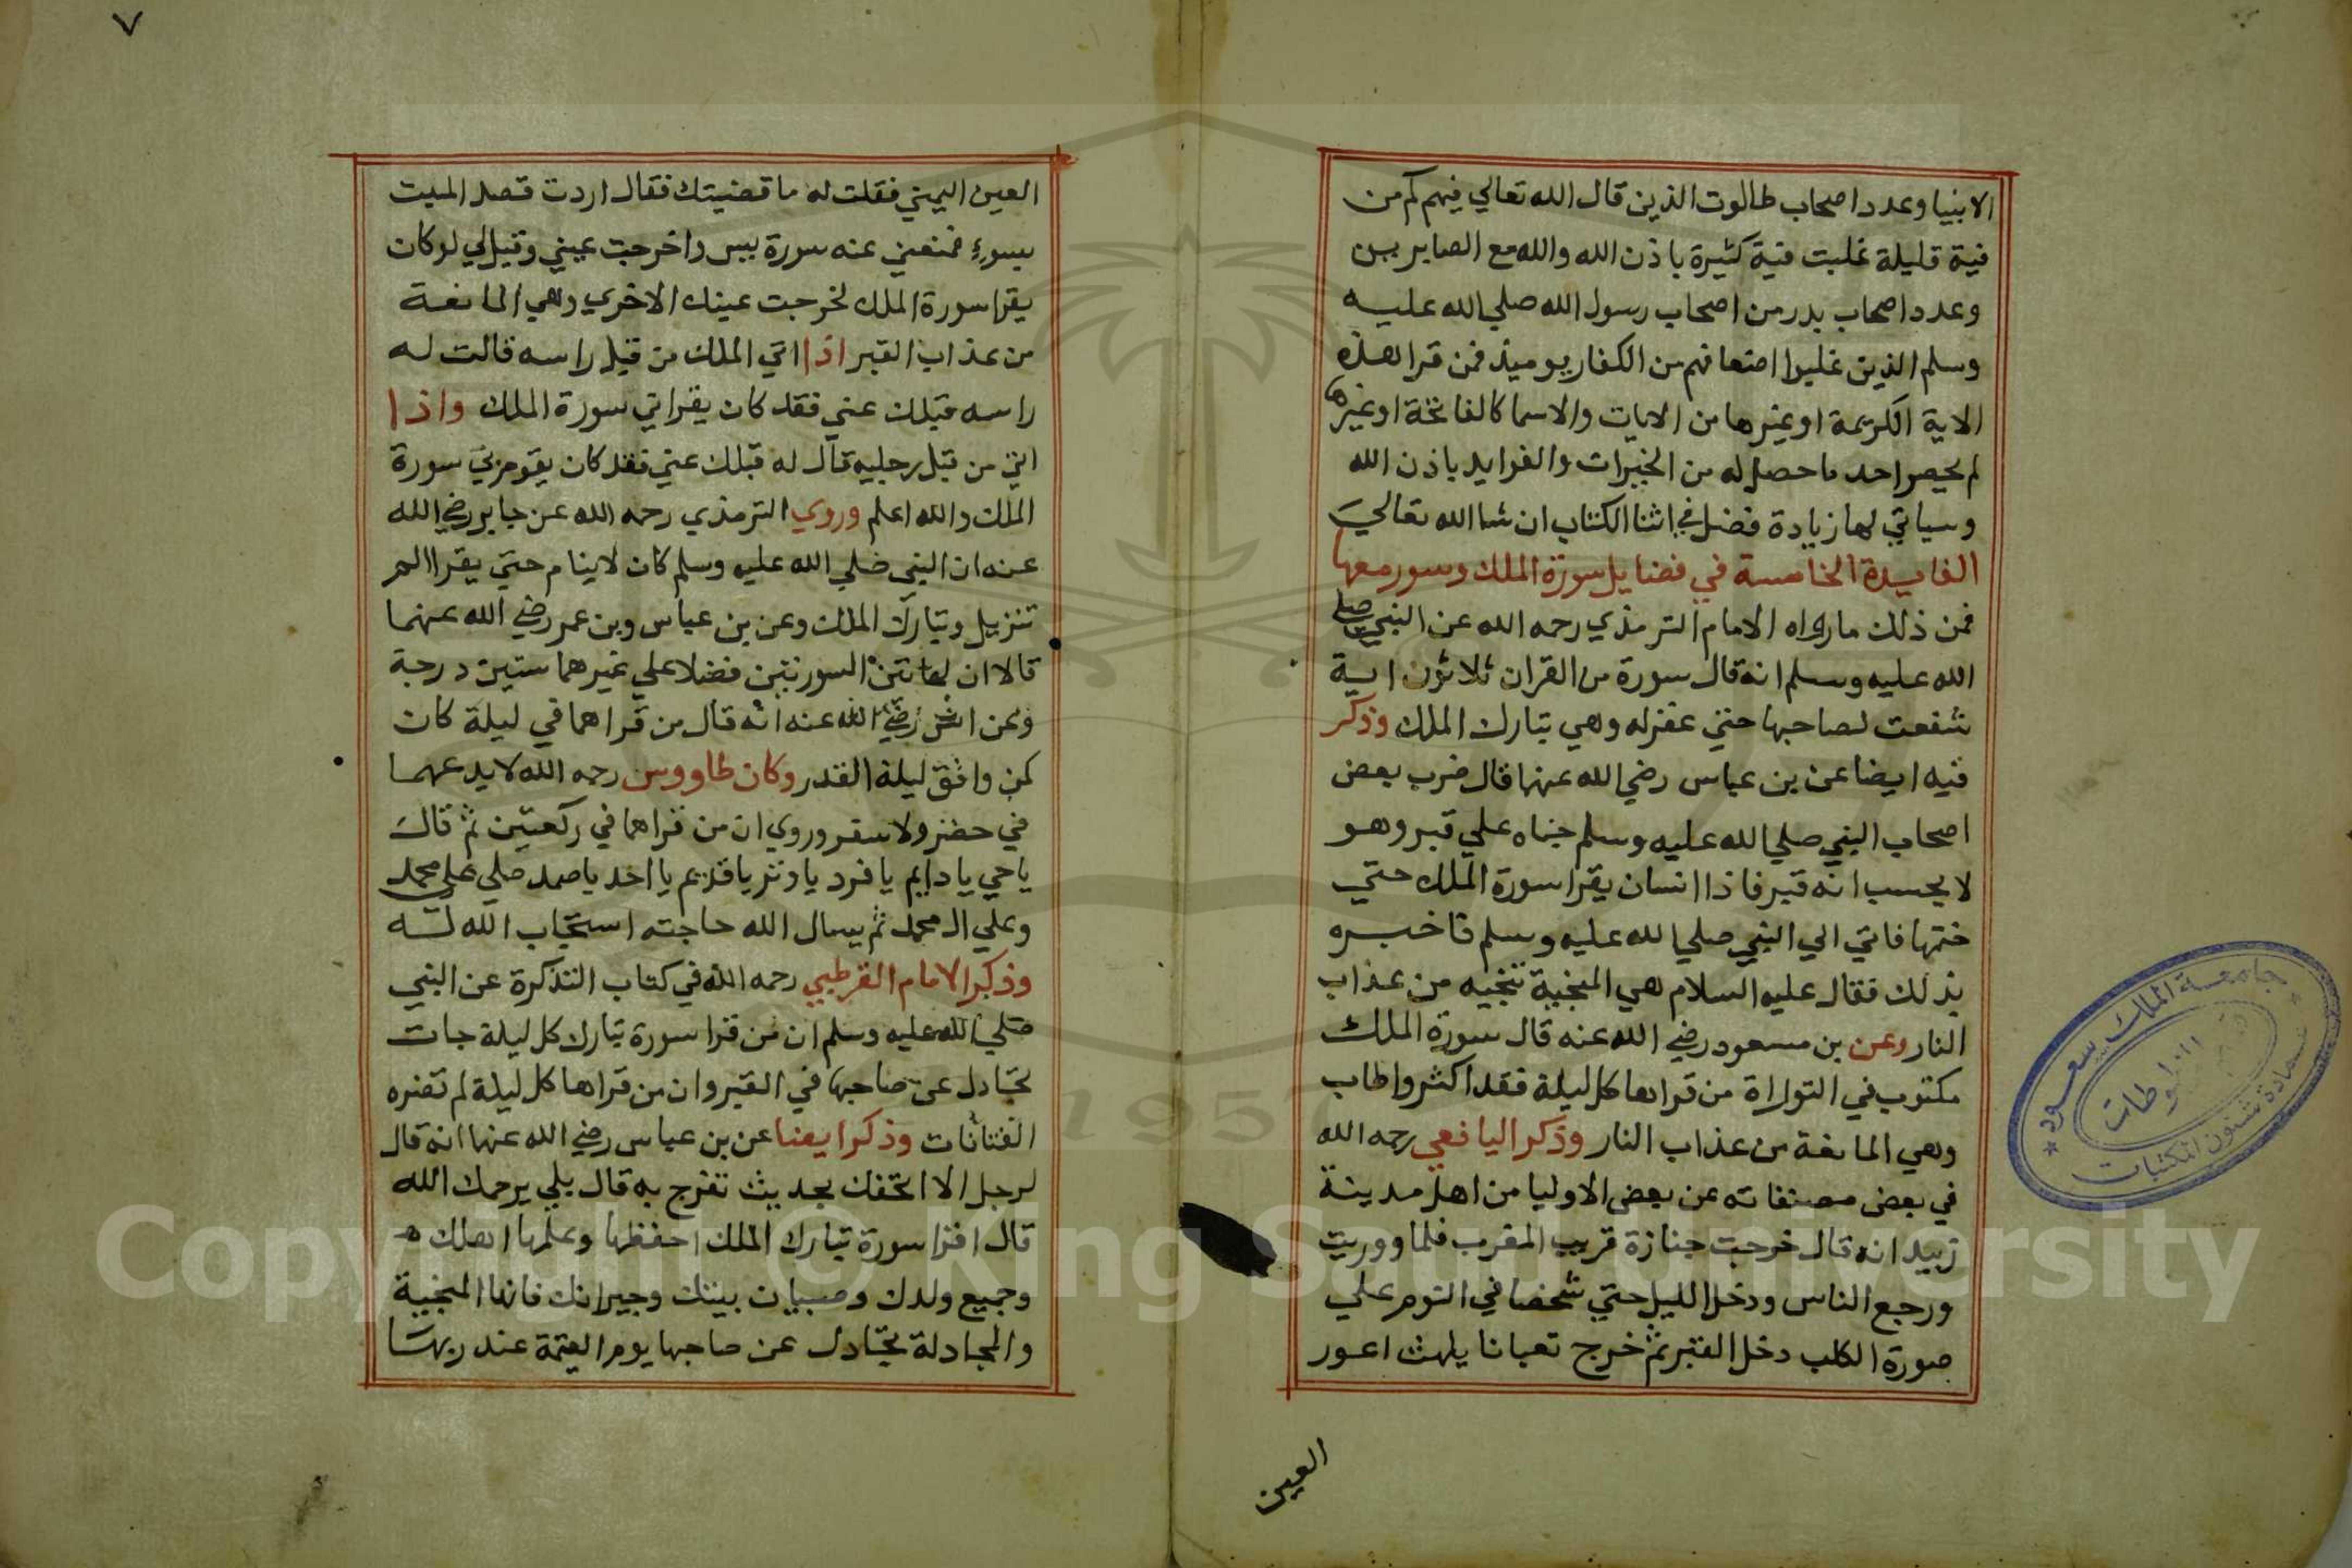 الانبيا وعدد اصحاب طالوت الذين قال الله تعالي فيهم كم من
فية قليلة غلبت فية كثيرة باذن الله والله مع الصابرين
وعدد اصحاب بدر من اصحاب رسول الله صلي الله عليه
وسلم الذين غلبوا اضعافهم من الكفار يوميذ فمن قرا هذه
الاية الكريمة او غيرها من الايات والاسما كالفاتحة او غيرها
لم يحصر احد ما حصل له من الخيرات والفوايد باذن الله
وسياتي لها زيادة فضل في اثنا الكتاب ان شا الله تعالي
الفايدة الخامسة في فضايل سورة الملك وسور معها
فمن ذلك ما رواه الامام الترمذي رحمه الله عن النبي صلي
الله عليه وسلم انه قال سورة من القران ثلاثون اية
شفعت لصاحبها حتي غفر له وهي تبارك الملك وذكر
فيه ايضا عن بن عباس رضي الله عنها قال ضرب بعض
اصحاب النبي صلي الله عليه وسلم خباه علي قبر وهو
لا يحسب انه قبر فاذا انسان يقرا سورة الملك حتي
ختمها فاتي الي النبي صلي الله عليه وسلم فاخبره
بذلك فقال عليه السلام هي المنجية تنجيه من عذاب
النار وعن بن مسعود رضي الله عنه قال سورة الملك
مكتوب في التوراة من قراها كل ليلة فقد اكثر واطاب
وهي المانعة من عذاب النار وذكر اليافعي رحمه الله
في بعض مصنفاته عن بعض الاوليا من اهل مدينة
زبيد انه قال خرجت جنازة قريب المغرب فلما ووريت
ورجع الناس ودخل الليل حتي شخصا في النوم علي
صورة الكلب دخل القبر ثم خرج تعبانا يلهث اعور
العين
٧
العين اليمني فقلت له ما قضيتك فقال اردت قصد الميت
بسوء فمنعني عنه سورة يس واخرجت عيني وقيل لي لو كان
يقرا سورة الملك لخرجت عينك الاخري وهي المانعة
من عذاب القبر اذا اتي الملك من قبل راسه قالت له
راسه قبلك عني فقد كان يقراتي سورة الملك واذا
اتي من قبل رجليه قال له قبلك عني فقد كان يقوم بي سورة
الملك والله اعلم وروي الترمذي رحمه الله عن جابر رضي الله
عنه ان النبي صلي الله عليه وسلم كان لا ينام حتي يقرا الم
تنزيل وتبارك الملك وعن بن عباس وبن عمر رضي الله عنهما
قالا ان لهاتين السورتين فضلا علي غيرهما ستين درجة
وعن انس رضي الله عنه انه قال من قراهما في ليلة كان
كمن وافق ليلة القدر وكان طاووس رحمه الله لا يدعهما
في حضر ولا سفر وروي ان من قراهما في ركعتين ثم قال
يا حي يا دايم يا فرد يا وتر يا قديم يا احد يا صمد صلي علي محمد
وعلي ال محمد ثم يسال الله حاجته استجاب الله له
وذكر الامام القرطبي رحمه الله في كتاب التذكرة عن النبي
صلي الله عليه وسلم ان من قرا سورة تبارك كل ليلة جات
تجادل عن صاحبها في القبر وان من قراها كل ليلة لم تضره
الفتانات وذكر ايضا عن بن عباس رضي الله عنها انه قال
لرجل الا اتحفك بحديث تفرح به قال بلي يرحمك الله
قال اقرا سورة تبارك الملك احفظها وعلمها اهلك
وجميع ولدك وصبيان بيتك وجيرانك فانها المنجية
والمجادلة تجادل عن صاحبها يوم القيمة عند ربها
جامعة الملك سعود
عمادة شئون المكتبات
Copyright © King Saud University
1957